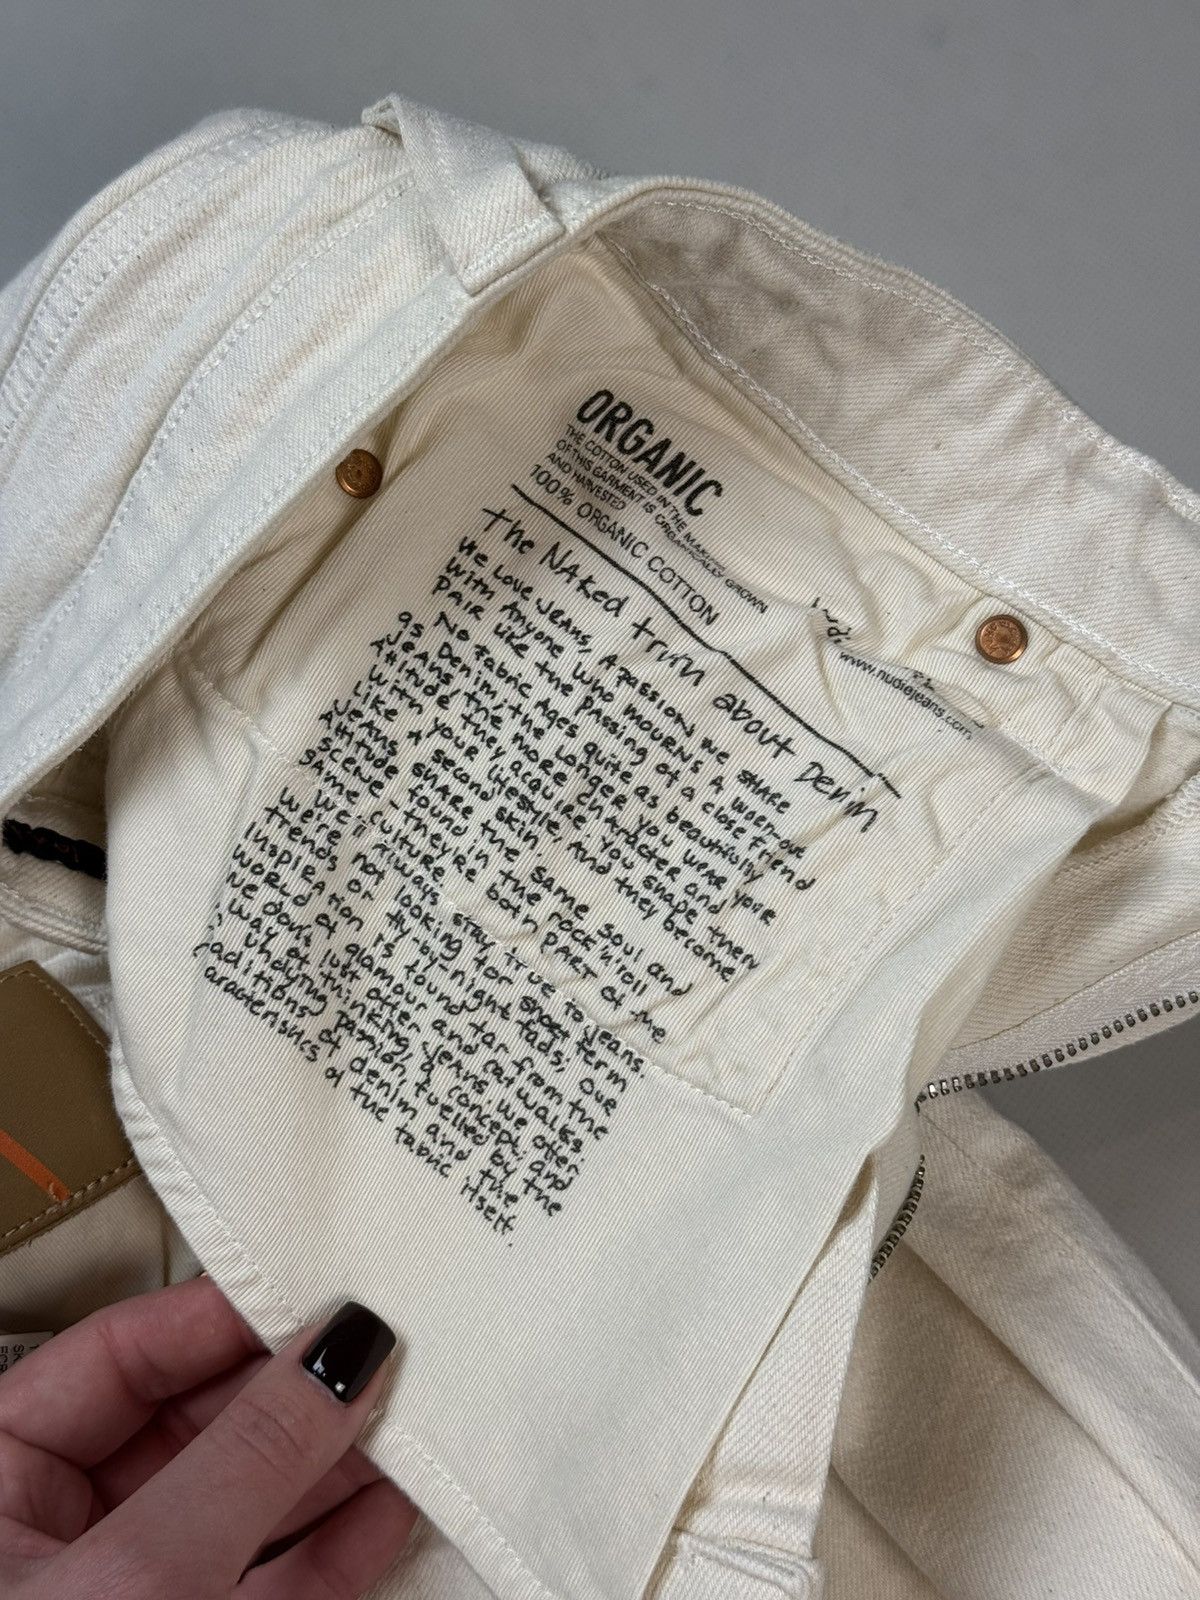 ORGANIC
THE COTTON USED IN THE MAKING
OF THIS GARMENT IS ORGANICALLY GROWN
AND HARVESTED
100% ORGANIC COTTON
The Naked truth about Denim
We Love Jeans, A passion we share
with Anyone who mourns A worn-out
pair like the passing of a close friend
No fabric Ages quite as beautifully
as Denim, the longer you wear your
Jeans the more character and
Attitude they acquire. you shape them
with your lifestyle, And they become
Like A second skin.
Jeans share the same soul and
Attitude found in the rock'n'roll
scene - they're both part of the
same culture.
We'll Always stay true to jeans.
We're not looking for short term
trends or fly-by-night fads; our
Inspiration is found far from the
world of glamour and catwalks.
We don't just offer jeans. we offer
way of thinking, a concept, and
undying passion, fuelled by the
aditions of denim and the
aracteristics of the fabric itself.
www.nudiejeans.com